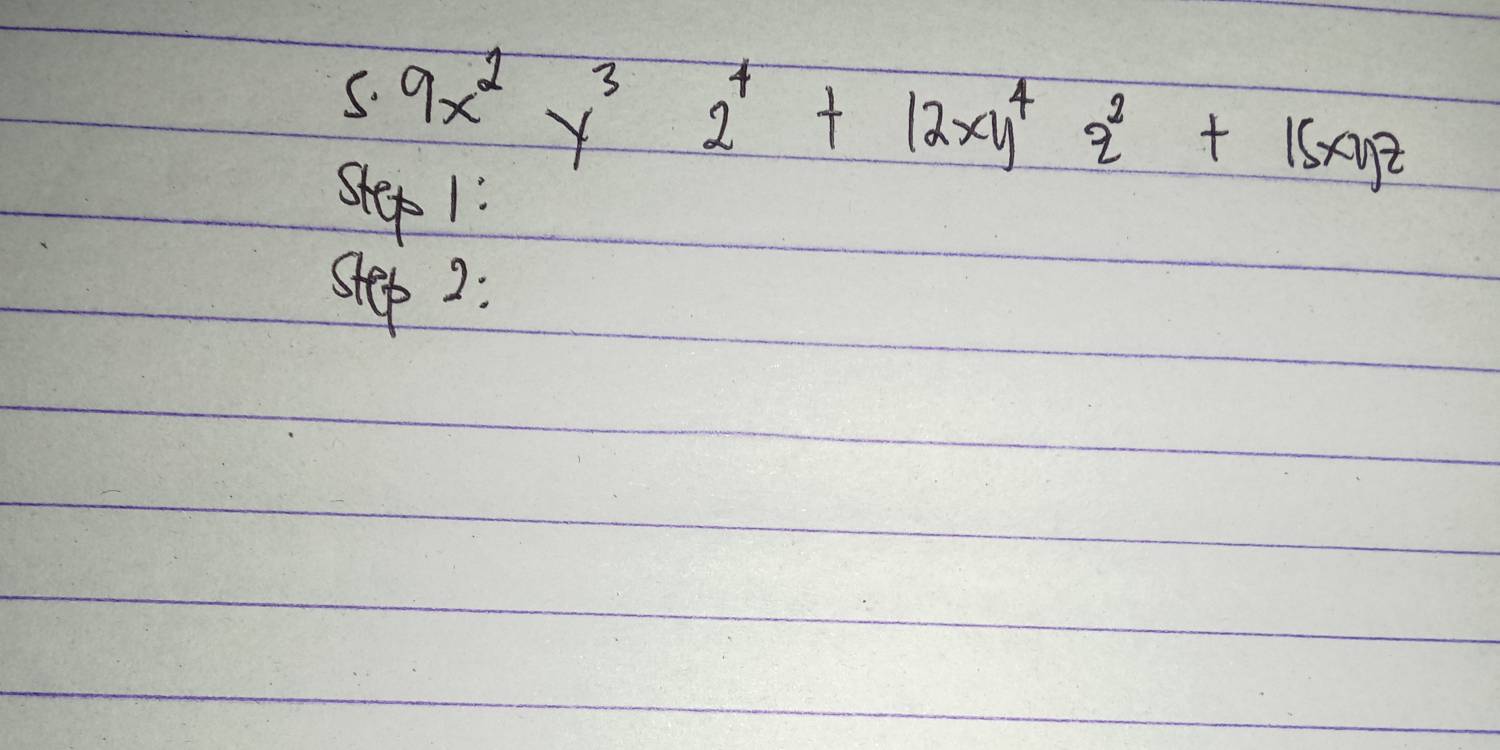 5. 9x² y³ z⁴ + 12xy⁴ z² + 15xyz
Step 1:
Step 2: